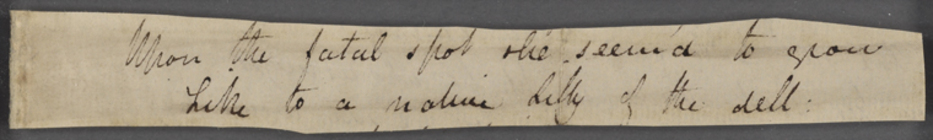 Upon the fatal spot she seem'd to grow
Like to a native Lilly of the dell: